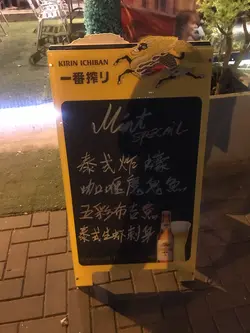 KIRIN ICHIBAN
一番搾り
Mint
SPECIAL
泰式炸蠔
咖喱鷹鯧魚
五彩布甸魚
泰式生蝦刺身